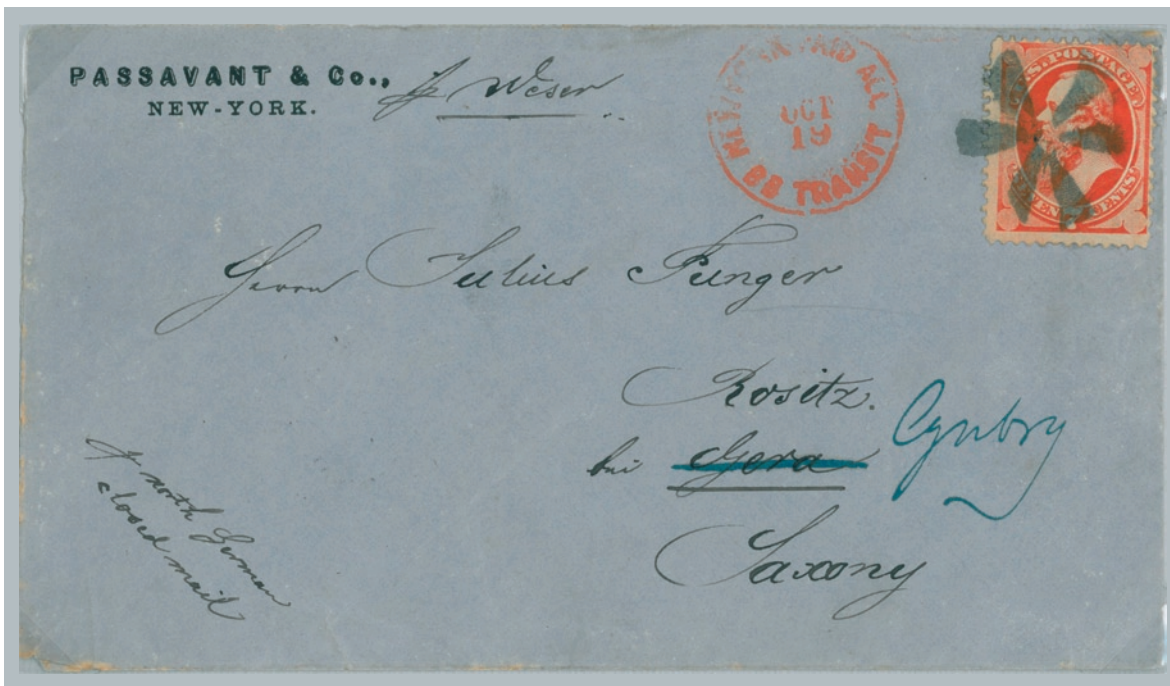 PASSAVANT & Co.,
NEW-YORK.
pr Weser
NEW YORK PAID ALL
OCT
19
BR TRANSIT
U.S. POSTAGE
CENTS
Herrn Julius Punger
Rositz.
bei Gera
Saxony
pr north German
closed mail